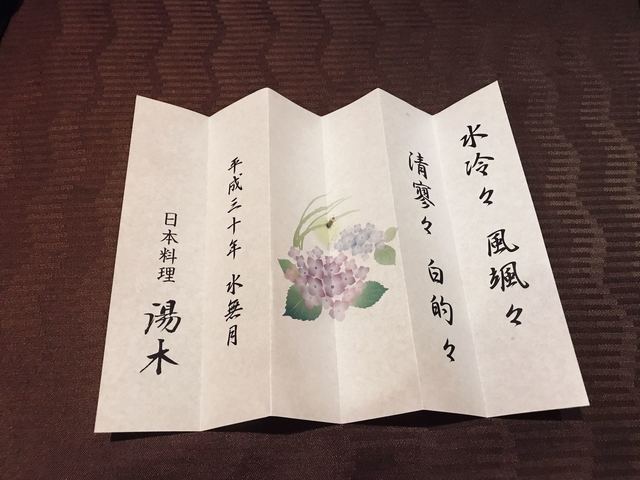 水冷々 風颯々
清寥々 白的々
平成三十年 水無月
日本料理 湯木